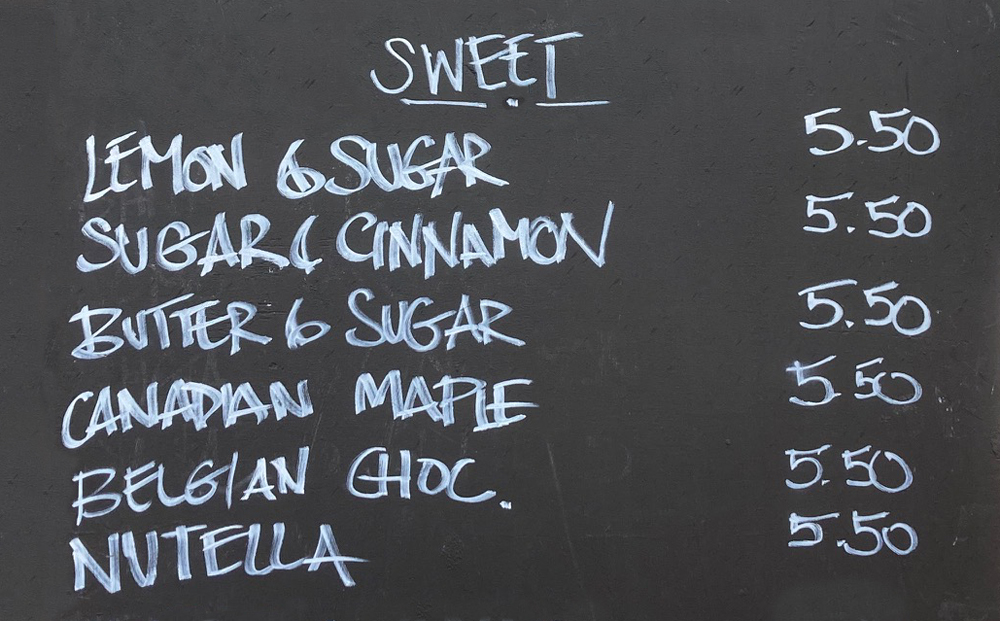 SWEET
LEMON & SUGAR 5.50
SUGAR & CINNAMON 5.50
BUTTER & SUGAR 5.50
CANADIAN MAPLE 5.50
BELGIAN CHOC. 5.50
NUTELLA 5.50